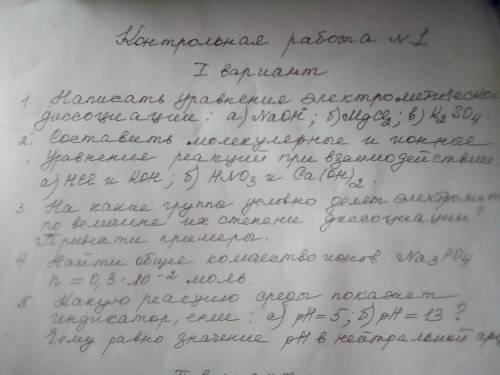 Контрольная работа №1
I вариант
1. Написать уравнение электрометической
диссоциации: а) NaOH; б) MgCl₂; в) K₂SO₄.
2. Составить молекулярные и ионные
уравнение реакций при взаимодействии
а) HCl и KOH; б) HNO₃ и Ca(OH)₂.
3. На какие группы условно делят электролиты
по величине их степени диссоциации?
Привести примеры.
4 Найти общее количество ионов Na₃PO₄
n = 0,3·10⁻² моль.
5. Какую реакцию среды покажет
индикатор, если: а) pH=5; б) pH=13?
Чему равно значение pH в нейтральной